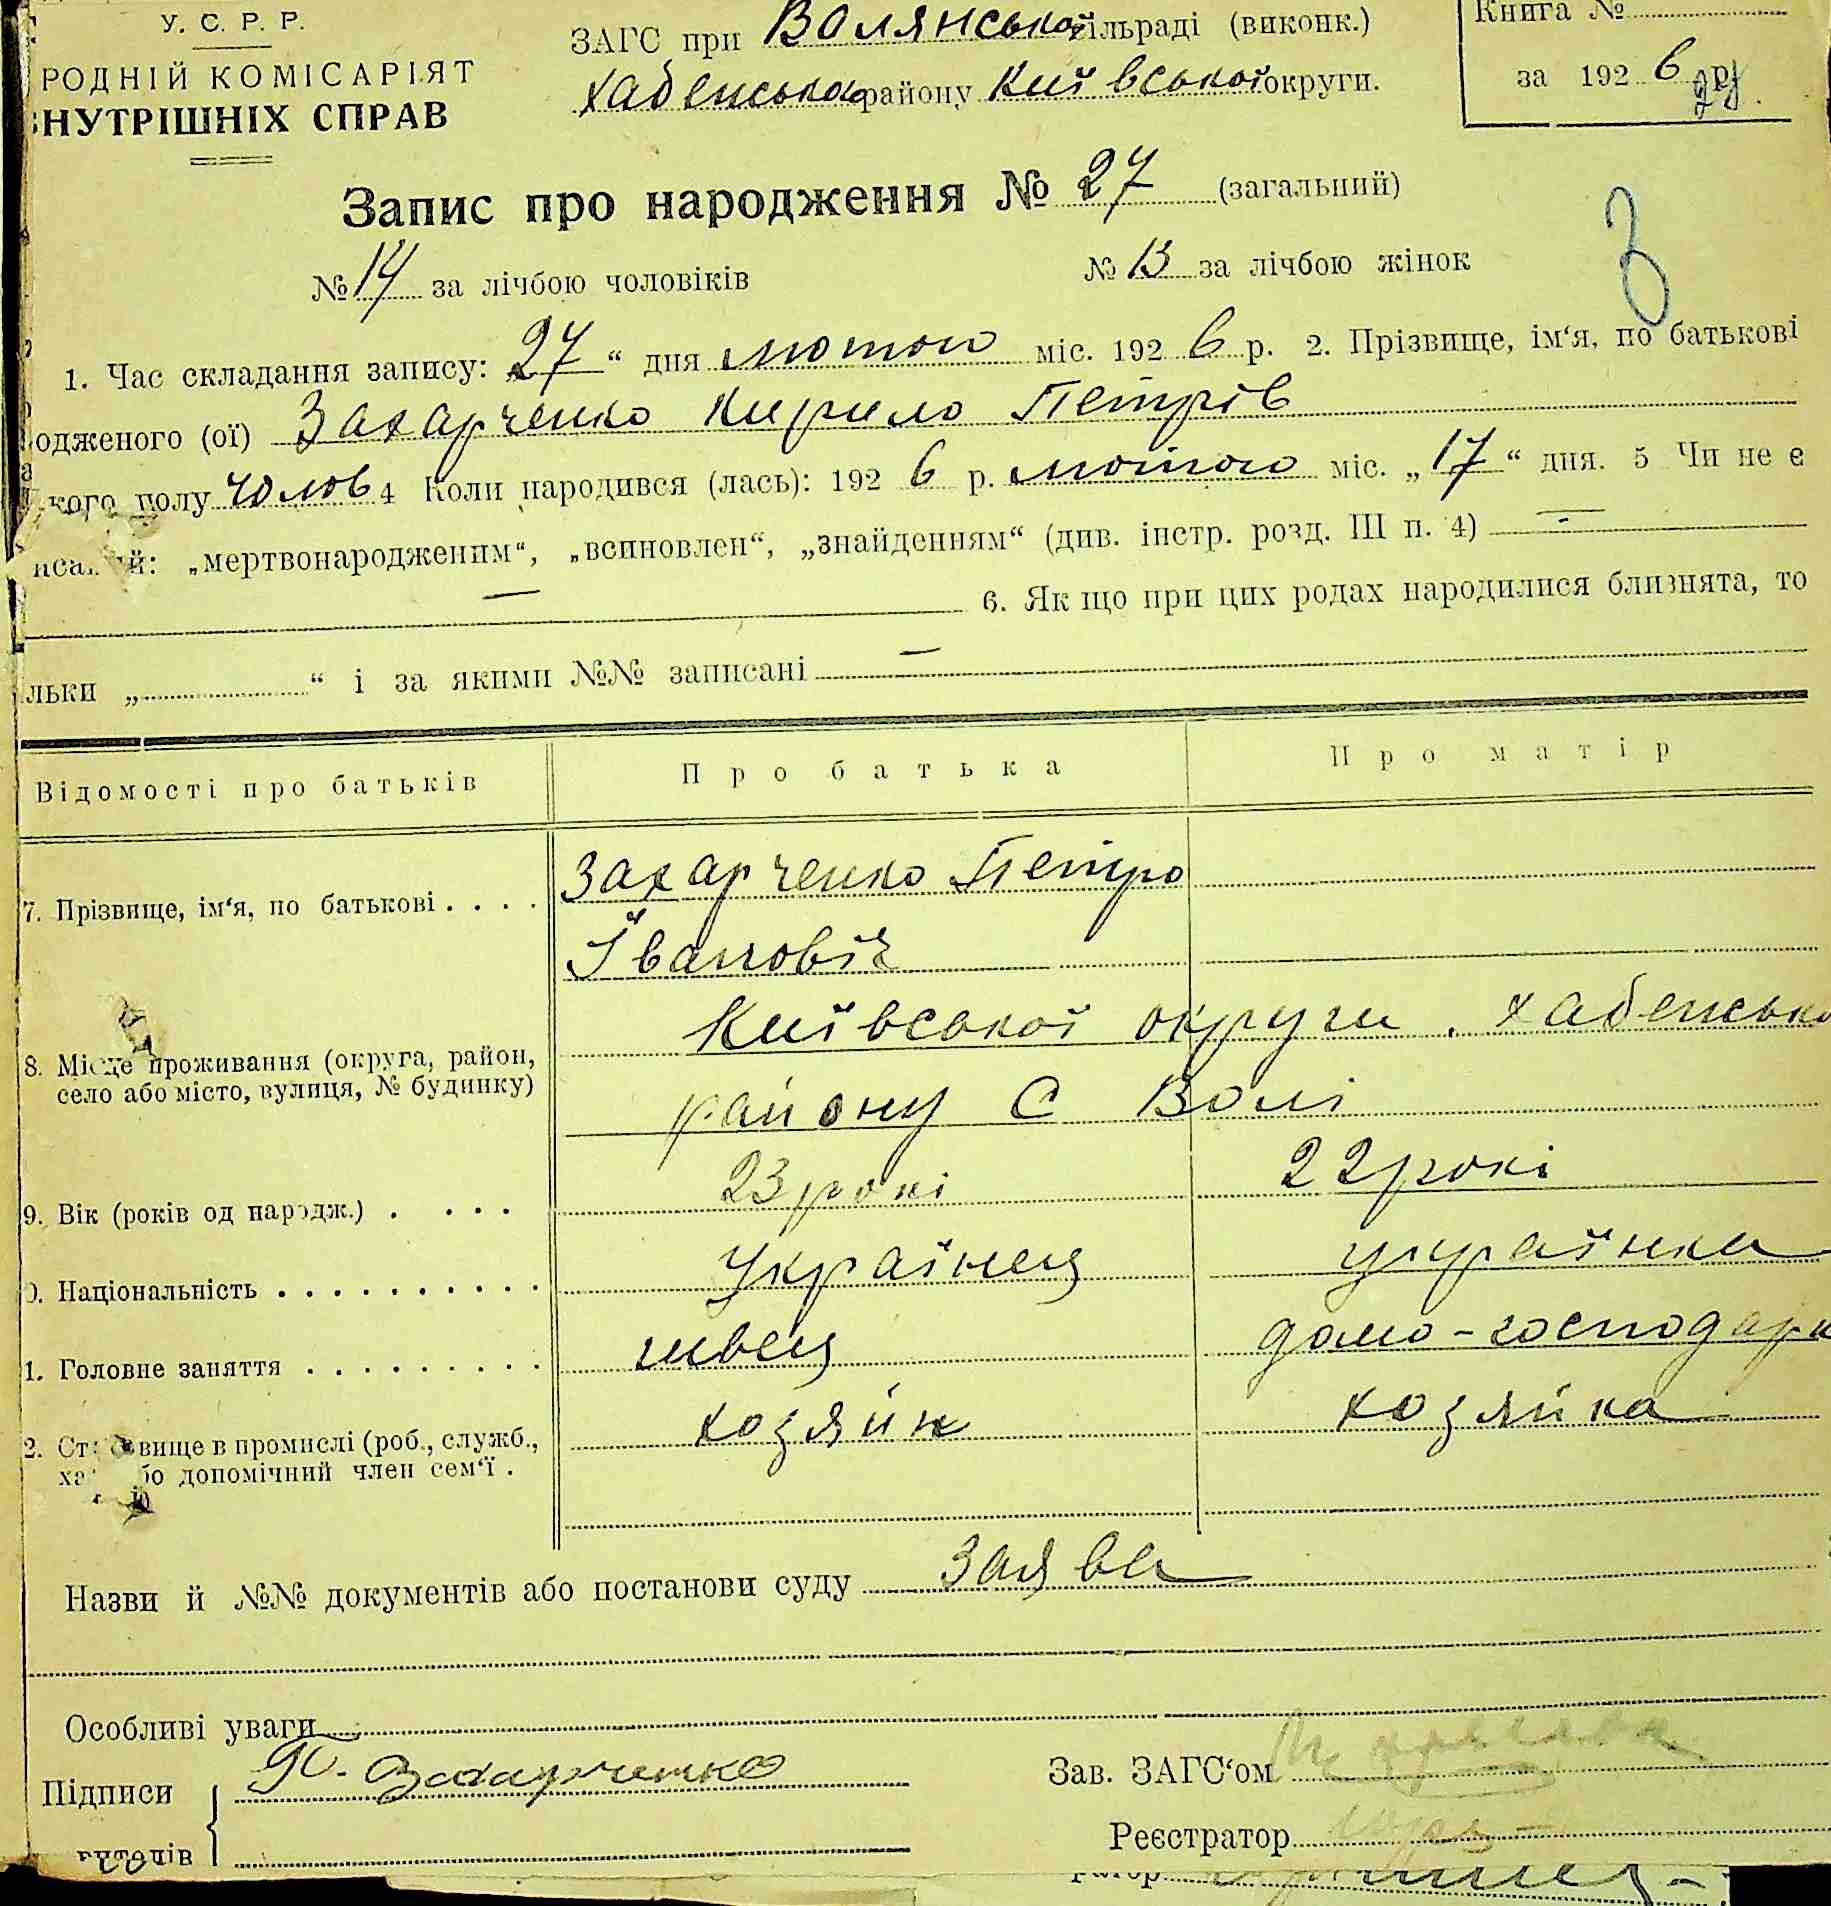 У. С. Р. Р.
РОДНІЙ КОМІСАРІЯТ
ВНУТРІШНІХ СПРАВ
ЗАГС при Волянській сільраді (виконк.)
Хабенського району Київської округи.
Книга №
за 1926 р.
Запис про народження № 27 (загальний)
№ 14 за лічбою чоловіків № 13 за лічбою жінок
1. Час складання запису: 27 “ дня лютого міс. 1926 р. 2. Прізвище, ім‘я, по батькові
одженого (ої) Захарченко Кирило Петрів
кого полу чолов 4 Коли народився (лась): 1926 р. лютого міс. „17“ дня. 5 Чи не є
й: „мертвонародженим“, „всиновлен“, „знайденням“ (див. інстр. розд. III п. 4) —
— 6. Як що при цих родах народилися близнята, то
льки „ “ і за якими №№ записані —
Відомості про батьків Про батька Про матір
7. Прізвище, ім‘я, по батькові . . . . Захарченко Петро
Івановіч
8. Місце проживання (округа, район, Київської округи. Хабенсько
село або місто, вулиця, № будинку) району С Волі
9. Вік (років од народж.) . . . . 23 рокі 22 рокі
0. Національність . . . . . . . . . . Українец українка
1. Головне заняття . . . . . . . . . швец домо-господарк
2. Становище в промислі (роб., служб., хозяйн хозяйка
або допомічний член сем‘ї .
Назви й №№ документів або постанови суду Заява
Особливі уваги
Підписи П. Захарченко Зав. ЗАГС‘ом
Реєстратор